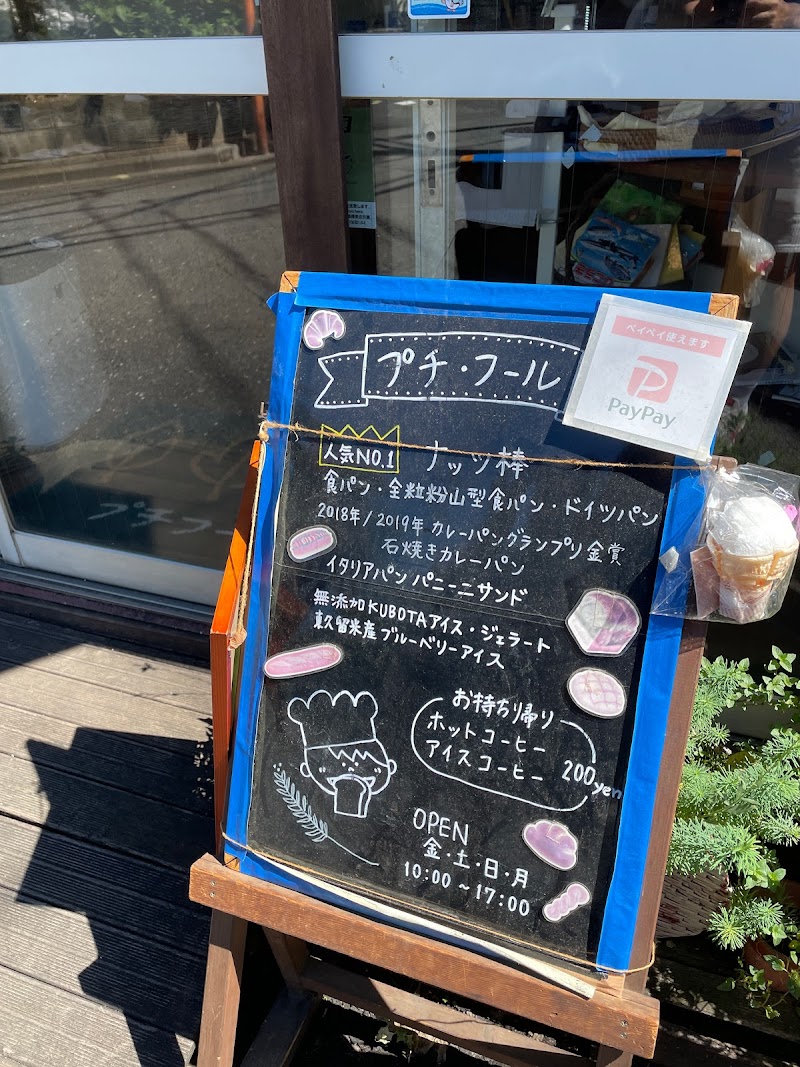 プチ・フール
ペイペイ使えます
PayPay
人気NO.1 ナッツ棒
食パン・全粒粉山型食パン・ドイツパン
2018年/2019年 カレーパングランプリ金賞
石焼きカレーパン
イタリアパン パニーニサンド
無添加KUBOTAアイス・ジェラート
東久留米産ブルーベリーアイス
お持ち帰り
ホットコーヒー
アイスコーヒー 200yen
OPEN
金・土・日・月
10:00〜17:00